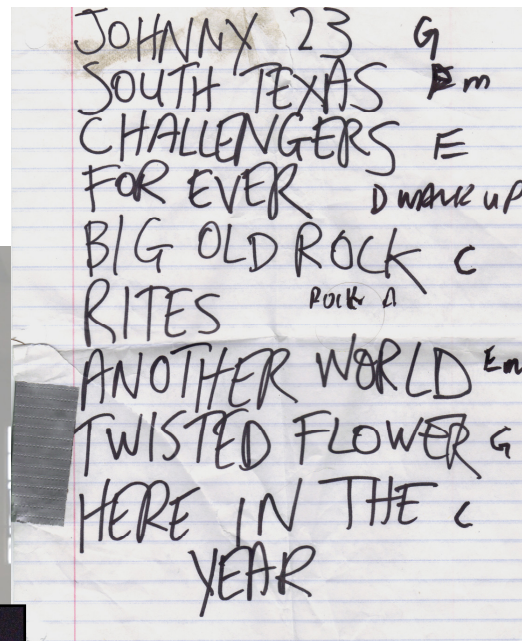 JOHNNY 23 G
SOUTH TEXAS Em
CHALLENGERS E
FOR EVER D WALK UP
BIG OLD ROCK C
RITES ROCK A
ANOTHER WORLD Em
TWISTED FLOWER G
HERE IN THE C
YEAR